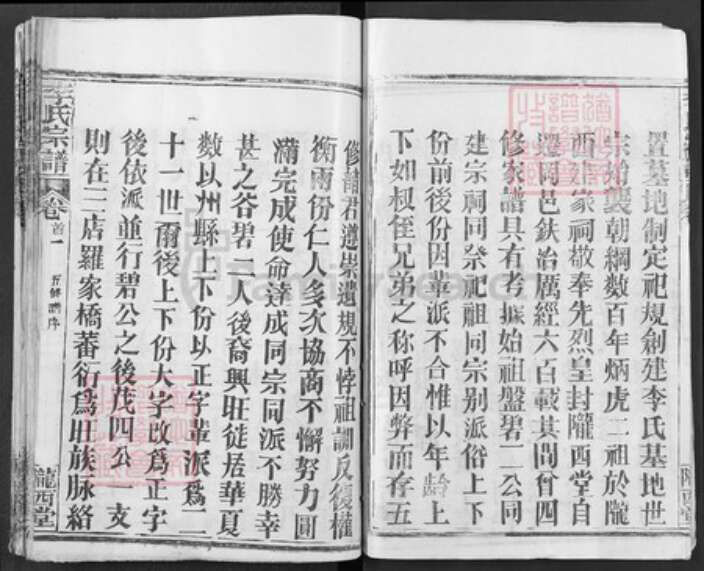 置墓地制定祀規創建李氏基地世
宗始襲朝綱数百年炳虎二祖於隴
西建家祠敬奉先烈皇封隴西堂自
遷同邑鈇治厲經六百載其間曾四
修家譜具有考據始祖盤碧二公同
建宗祠同祭祀祖同宗别派俗上下
份前後份因輩派不合惟以年龄上
下如叔侄兄弟之称呼因弊而存五
修諸君遵崇遺規不悖祖訓反復權
衡兩份仁人多次協商不懈努力圓
滿完成使命達成同宗同派不勝幸
甚之谷碧二人後裔興旺徒居華夏
数以州縣上下份以正字輩派爲二
十一世爾後上下份大字改爲正字
後依派並行碧公之後茂四公一支
則在三店羅家橋蕃衍爲旺族脉絡
李氏宗譜
卷首一
五修譜序
隴西堂
隴西堂
FamilySearch